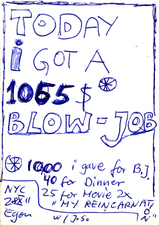 TODAY
I GOT A
1055 $ *
BLOW-JOB
* 1000 i gave for B.J.
40 for Dinner
25 for Movie 2x
NYC "MY REINCARNATION"
Egon w/